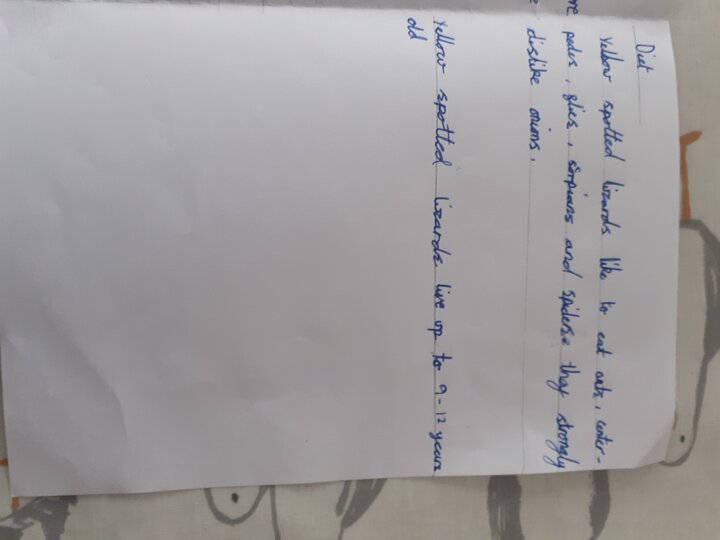 Diet
Yellow spotted lizards like to eat ants, center-
pedes, glies, scorpians and spiders. they strongly
dislike onions.
Yellow spotted lizards live up to 9-12 years
old